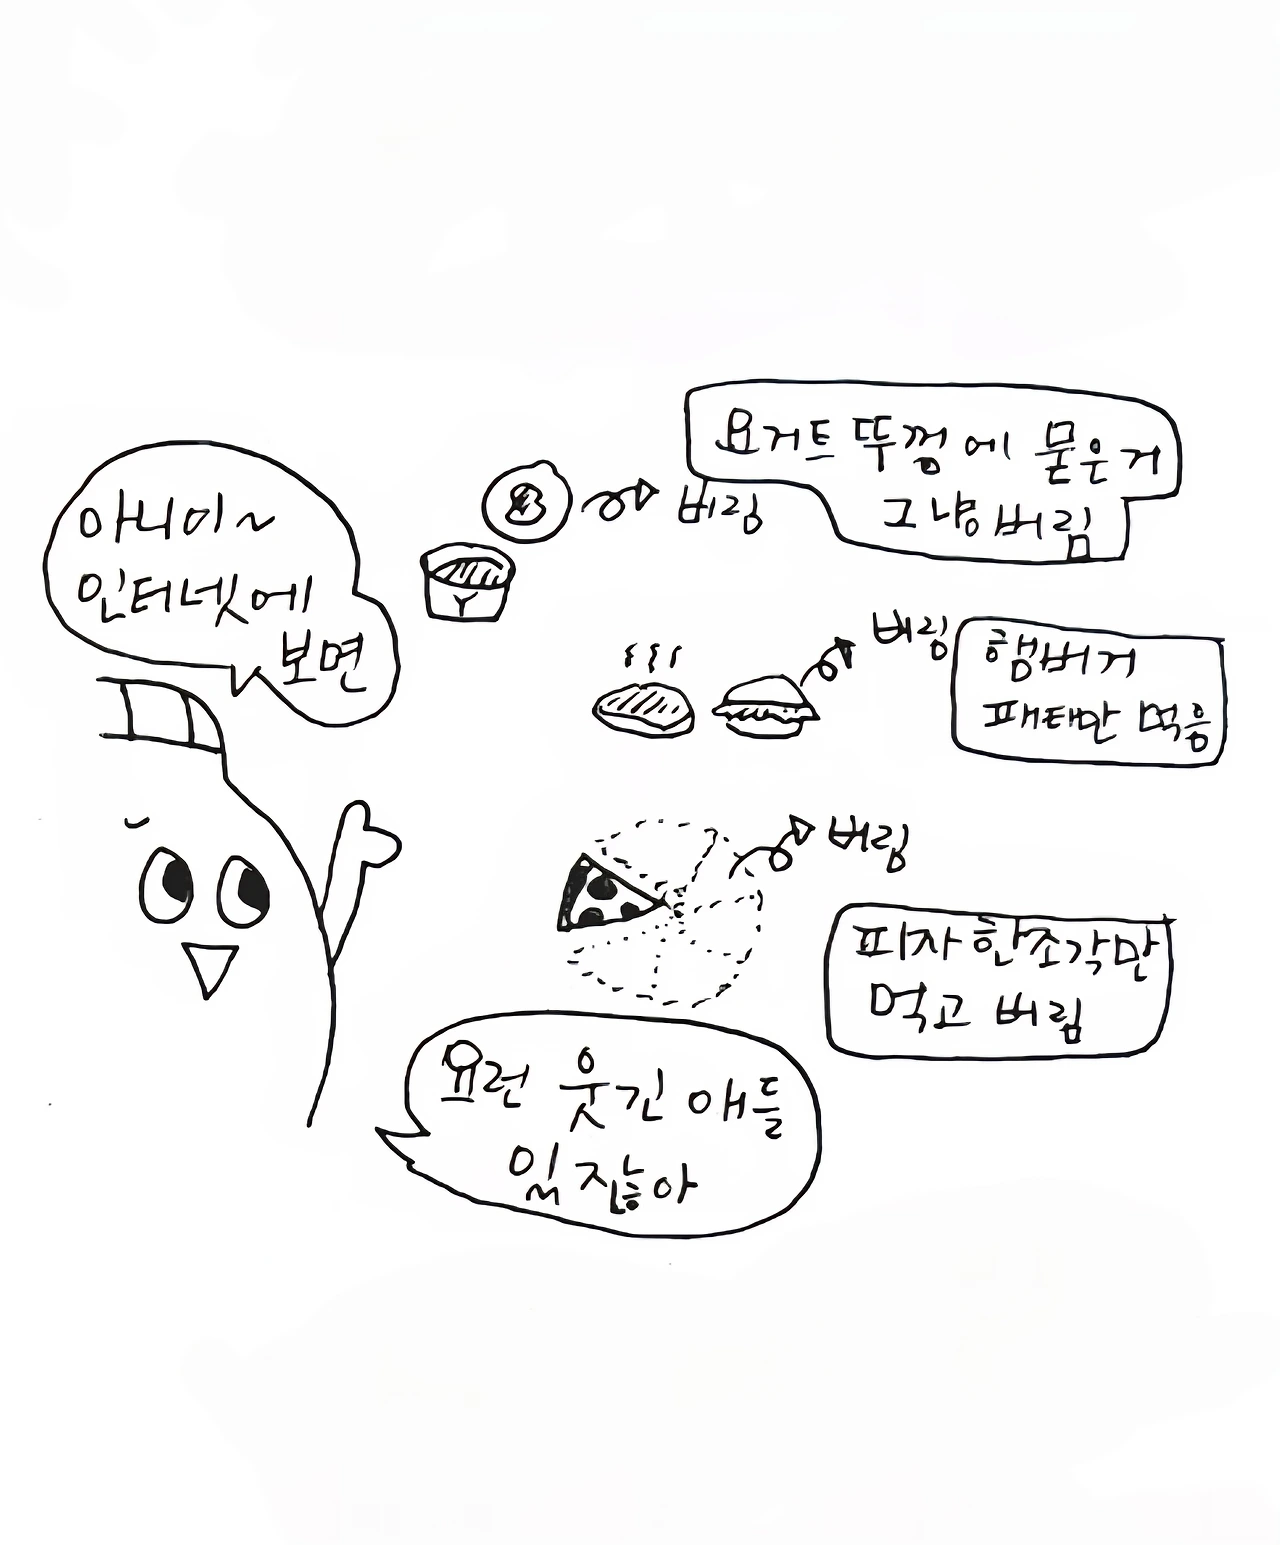 아니이~
인터넷에
보면
버림
요거트 뚜껑에 묻은거
그냥 버림
Y
버림
햄버거
패태만 먹음
버림
피자 한조각만
먹고 버림
요런 웃긴 애들
있잖아